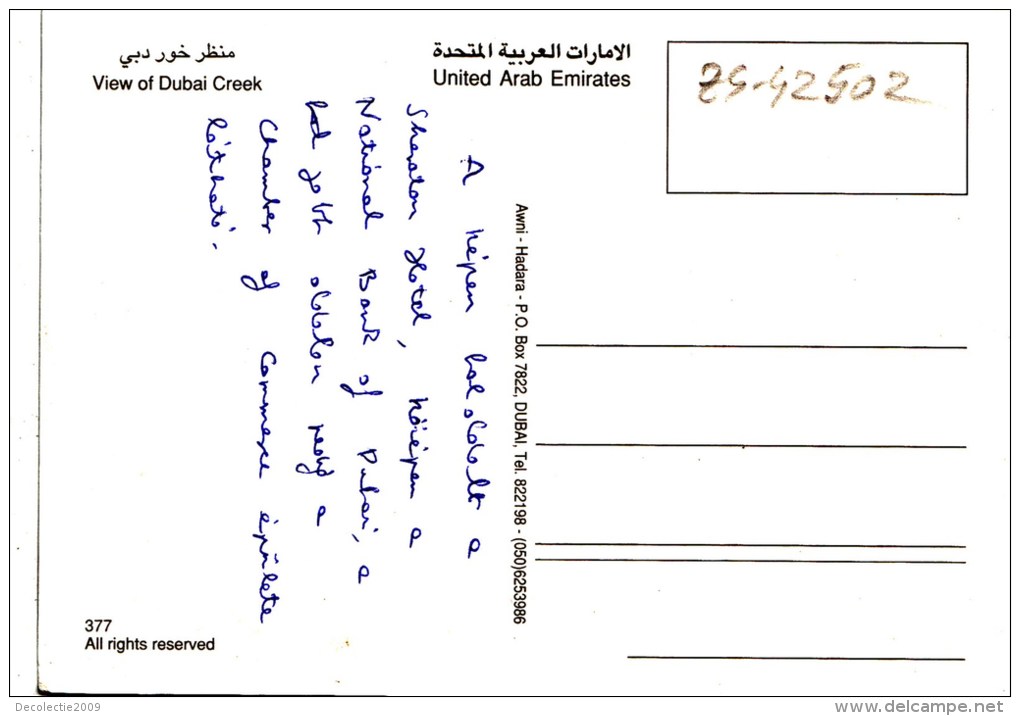 منظر خور دبي
View of Dubai Creek
الامارات العربية المتحدة
United Arab Emirates
ZS-42502
A képen baloldalt a
Sheraton Hotel, középen a
National Bank of Dubai, a
jobb oldalon pedig a
Chamber of Commerce épülete
látható.
Awni - Hadara - P.O. Box 7822, DUBAI, Tel. 822198 - (050)6253986
377
All rights reserved
Decolectie2009
www.delcampe.net